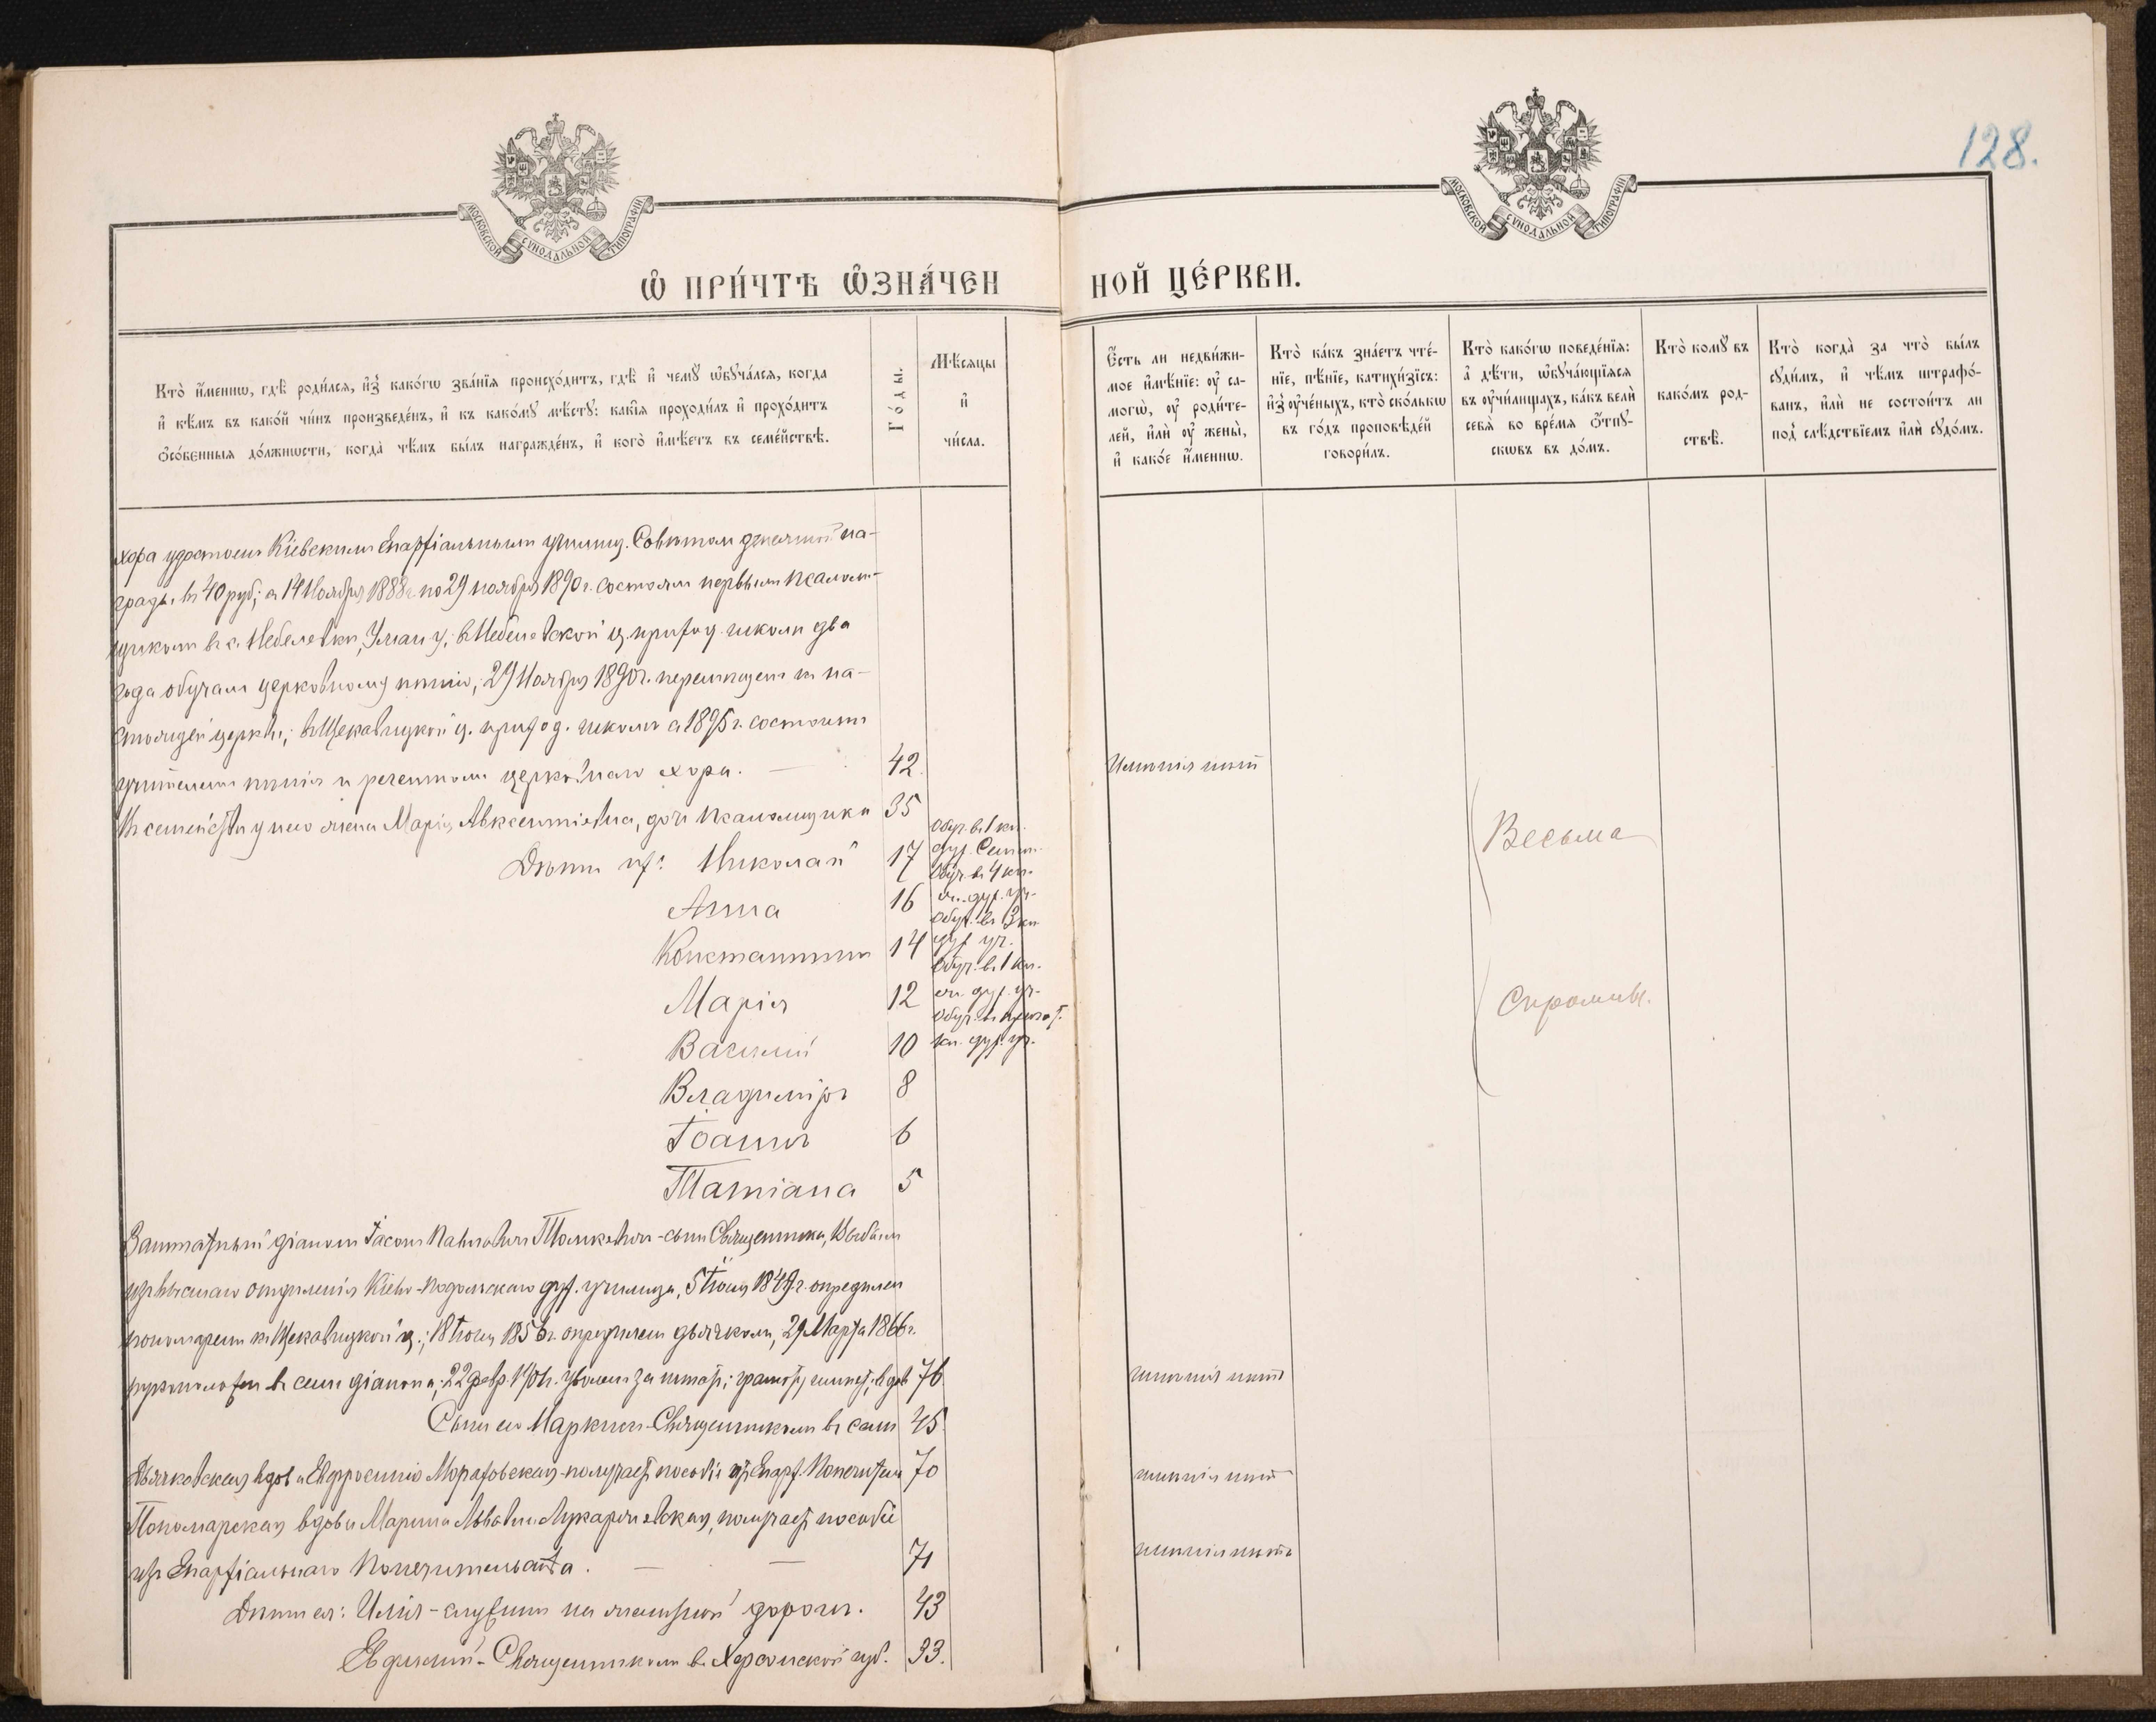 128.
МОСКОВСКОЙ СѴНОДАЛЬНОЙ ТИПОГРАФІИ
МОСКОВСКОЙ СѴНОДАЛЬНОЙ ТИПОГРАФІИ
Ѡ ПРИ́ЧТѢ ѠЗНА́ЧЕН
НОЙ ЦЕ́РКВИ.
Кто̀ и҆́меннѡ, гдѣ̀ роди́лся, и҆з̾ како́гѡ зва́нїя происхо́дитъ, гдѣ̀ и҆ чемꙋ̀ ѡ҆бꙋча́лся, когда̀
и҆ кѣ́мъ въ како́й чи́нъ произведе́нъ, и҆ къ како́мꙋ мѣ́стꙋ: какі̑я проходи́лъ и҆ прохо́дитъ
ѻ҆со́бенныя до́лжнѡсти, когда̀ чѣ́мъ бы́лъ награжде́нъ, и҆ кого̀ и҆мѣ́етъ въ семе́йствѣ.
Го́ды.
Мѣ́сяцы
и҆
чи́сла.
Е҆́сть ли недви́жи-
мое и҆мѣ́нїе: ᲂу҆ са-
могѡ̀, ᲂу҆ роди́те-
лей, и҆лѝ ᲂу҆ жены̀,
и҆ како́е и҆́меннѡ.
Кто̀ ка́къ зна́етъ чте́-
нїе, пѣ́нїе, катихи́зїсъ:
и҆з̾ ᲂу҆че́ныхъ, кто̀ ско́лькѡ
въ го́дъ проповѣ́дей
говори́лъ.
Кто̀ како́гѡ поведе́нїя:
а҆ дѣ́ти, ѡ҆бꙋча́ющїяся
въ ᲂу҆чи́лищахъ, ка́къ вели̇̀
себя̀ во вре́мя ѿпꙋ-
скѡвъ въ до́мъ.
Кто̀ комꙋ̀ въ
како́мъ род-
ствѣ̀.
Кто̀ когда̀ за что̀ бы́лъ
сꙋди́мъ, и҆ чѣ́мъ штрафо́-
ванъ, и҆лѝ не состои́тъ ли
под̾ слѣ́дствїемъ и҆лѝ сꙋдо́мъ.
хора удостоенъ Кіевскимъ Епархіальнымъ училищ. Совѣтомъ денежной на-
грады въ 40 руб; съ 14 Ноября 1888 г. по 29 ноября 1890 г. состоялъ первымъ псалом-
щикомъ въ с. Небелевкѣ, Уман у, въ Небелевской ц. приход. школѣ два
года обучалъ церковному пѣнію; 29 Ноября 1890 г. перемѣщенъ къ на-
стоящей церкви; въ Щекавицкой ц. приход. школѣ съ 1895 г. состоитъ
учителемъ пѣнія и регентомъ церковнаго хора. — 42. Имѣнія нѣтъ
Въ семействѣ у него жена Марія Авксентіевна, дочь псаломщика 35
Дѣти их: Николай 17 обуч. въ 1 кл. дух. Семин.
Анна 16 Обуч. въ 4 кл. ж. дух. уч.
Константинъ 14 обуч. въ 3 кл дух уч.
Марія 12 обуч. въ 1 кл. ж. дух. уч.
Василій 10 обуч. въ кл. дух. уч.
Весьма
Скромны.
Владиміръ 8
Іоаннъ 6
Татіана 5
Заштатный діаконъ Іасонъ Павловичъ - сынъ Священника, выбылъ
изъ высшаго отдѣленія Кіево-подольскаго дух. училища, 5 1849 г. опредѣленъ
пономаремъ къ Щекавицкой ц.; 18 1856 г. опредѣленъ дьячкомъ, 29 Марта 1866 г.
рукоположен въ санъ діакона; 22 февр. уволенъ за штат; грамоту имѣет, вдов 76 имѣнія нѣтъ
Сынъ его Маркіанъ - Священникомъ въ селѣ 45
Дьячковская вдова Евфросинія Мораховская - получает пособіе из Епарх. Попечител 70 имѣнія нѣтъ
Пономарская вдова Марина Львовна, получает пособіе
изъ Епархіальнаго Попечительства. — — 71 имѣнія нѣтъ
Дѣти ея: Илія - служитъ на желѣзной дорогѣ. 43
Евфимій - Священникомъ въ Херсонской губ. 33.